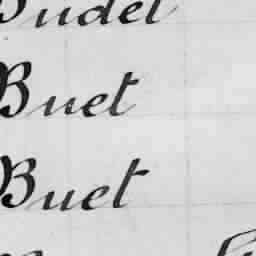 Budet
Buet
Buet